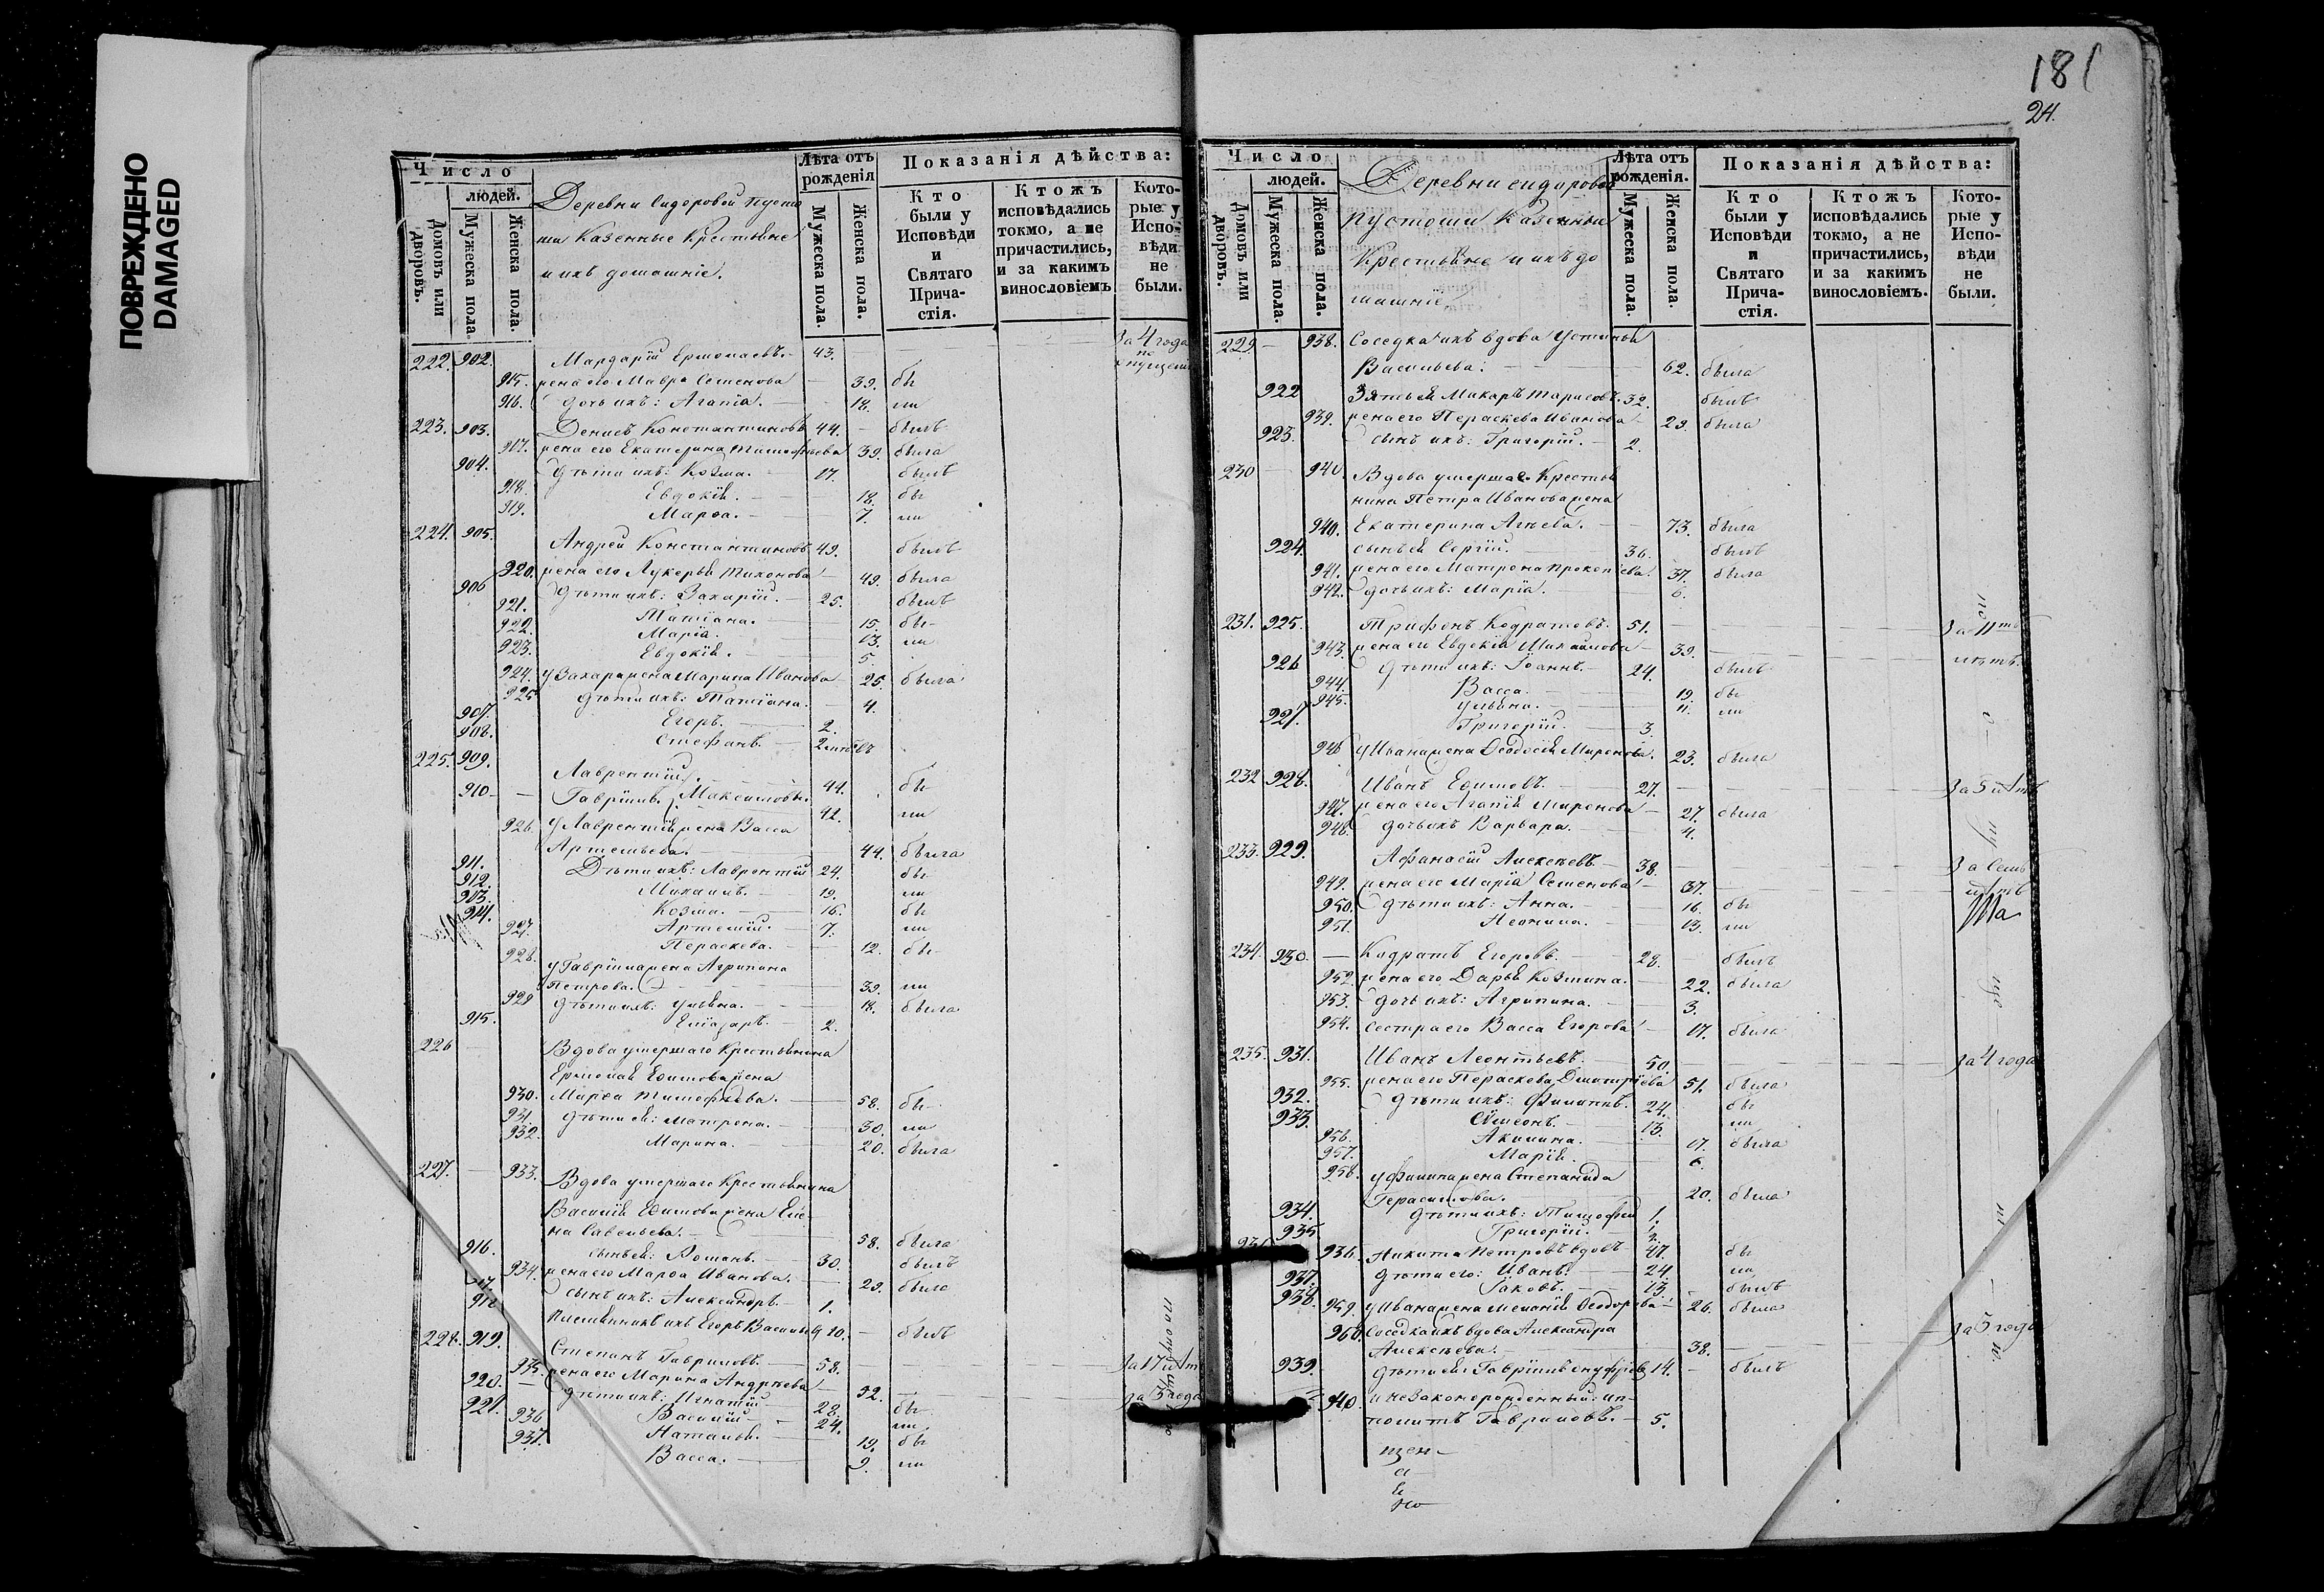 ПОВРЕЖДЕНО
DAMAGED
181
24.
Число
людей.
Домовъ или дворовъ.
Мужеска пола.
Женска пола.
Деревни Сидоровой пусто
ши Казенные Крестьяне
и ихъ домашніе.
Лѣта отъ рожденія
Мужеска пола.
Женска пола.
Показанія дѣйства:
Кто были у Исповѣди и Святаго Причастія.
Ктожъ исповѣдались токмо, а не причастились, и за какимъ винословіемъ
Которые у Исповѣди не были.
222. 902. Мардарій Ермолаевъ. 43. За 4 года
по опущенію
915. жена его Мавра Семенова 39. бы
916. дочь ихъ: Агапія. 18. ли
223. 903. Денисъ Константиновъ 44. былъ
917. жена его Екатерина Тимофѣева 39. была
904. Дѣти ихъ: Козма. 17. былъ
918. Евдокія. 18. бы
919. Марѳа. 7. ли
224. 905. Андрей Константиновъ 49. былъ
920. жена его Лукерья Тихонова 49. была
906 Дѣти ихъ: Захарій. 25. былъ
921. Татіана. 15. бы
922. Марія. 13. ли
923. Евдокія. 5.
924. у Захара жена Марина Иванова 25. была
925 дѣти ихъ: Татіана. 4.
907. Егоръ. 2.
908. Стефанъ. 2
225. 909. Лаврентій 44. бы
910 Гавріилъ Максимовы. 42. ли
926. У Лаврентія жена Васса
Артемьева. 44. была
911. Дѣти ихъ: Лаврентій 24. бы
912. Михаилъ. 19. ли
913. Козма. 16. бы
914. Артемій. 7. ли
927. Параскева. 12. бы
928. у Гавріила жена Агрипина
Петрова. 39. ли
929 дѣти ихъ: Ульяна. 18. была
915. Еліазаръ. 2.
226 Вдова умершаго Крестьянина
Ермолая Ефимова жена
930. Марѳа Тимофѣева. 58. бы
931. дѣти ея: Матрена. 30. ли
932. Марина. 20. была
227. 933. Вдова умершаго Крестьянина
Василія Ефимова жена Еле
на Савельева. 58. была
916. сынъ ея: Романъ. 30. былъ
934. жена его Марѳа Иванова. 29. была
917. сынъ ихъ: Александръ. 1.
918 племянникъ ихъ Егоръ Васильевъ 10. былъ
228. 919. Степанъ Гавриловъ. 58. за 17 лѣт
935. жена его Марина Андрѣева 52. за 3 года
920. дѣти ихъ: Игнатій 28. бы
921. Василій 24. ли
936 Наталья. 19. бы
937. Васса. 9. ли
по опущенію
Число
людей.
Домовъ или дворовъ.
Мужеска пола.
Женска пола.
Деревни Сидоровой
пустоши Казенные
Крестьяне и ихъ до
машніе.
Лѣта отъ рожденія.
Мужеска пола.
Женска пола.
Показанія дѣйства:
Кто были у Исповѣди и Святаго Причастія.
Ктожъ исповѣдались токмо, а не причастились, и за какимъ винословіемъ.
Которые у Исповѣди не были.
229. 938. Соседка ихъ вдова Устинья
Васильева. 62. была
922 Зять ея Макаръ 32. былъ
939. жена его Параскева Иванова 29. была
923. сынъ ихъ: Григорій. 2.
230 940. Вдова умершаго Крестья
нина Петра Иванова жена
940. Екатерина Агѣева. 73. была
924. сынъ ея Сергій. 36. былъ
941. жена его Матрона Прокопіева. 37. была
942. дочь ихъ: Марія. 6.
231. 925. Трифонъ Кодратовъ. 51. За 11ть
943. жена его Евдокія Михайлова 39. лѣтъ.
926 дѣти ихъ: Іоаннъ. 24. былъ
944. Васса. 19. бы
945. Ульяна. 11. ли
927. Григорій. 3.
946 у Ивана жена Ѳеодосія Миронова. 23. была
232 928. Иванъ Ефимовъ. 27. За 5 лѣтъ
947. жена его Агапія Миронова 27. была
948. дочь ихъ Варвара. 4.
233. 929. Афанасій Алексѣевъ. 38. За Семь
949. жена его Марія Семенова 37. лѣтъ
950. дѣти ихъ: Анна. 16. бы
951. Леонила. 13. ли
234. 930. Кодратъ Егоровъ. 28. былъ
952. жена его Дарья Козмина. 22. была
953. дочь ихъ: Агрипина. 3.
954. сестра его Васса Егорова 17. была
235. 931. Иванъ Леонтьевъ. 50. за 4 года
955. жена его Параскева Дмитріева 51. была
932. дѣти ихъ: Филиппъ. 24. бы
933. Сѵмеонъ. 13. ли
956. Акилина. 17. была
957. Марія. 6.
958. у Филиппа жена Степанида
Герасимова. 20. была
934. дѣти ихъ: Тимофей 1.
935 Григорій.
936. Никита Петровъ вдовъ 47. бы
937. дѣти его: Иванъ. 24. ли
938. Іаковъ. 13. былъ
959. у Ивана жена Меланія Ѳеодорова 26. была
960. соседка ихъ вдова Александра
Алексѣева. 38. за 3 года
939. дѣти ея: Гавріилъ Онуфріевъ 14. былъ
940. и незаконорожденный: ип
политъ Гавриловъ. 5.